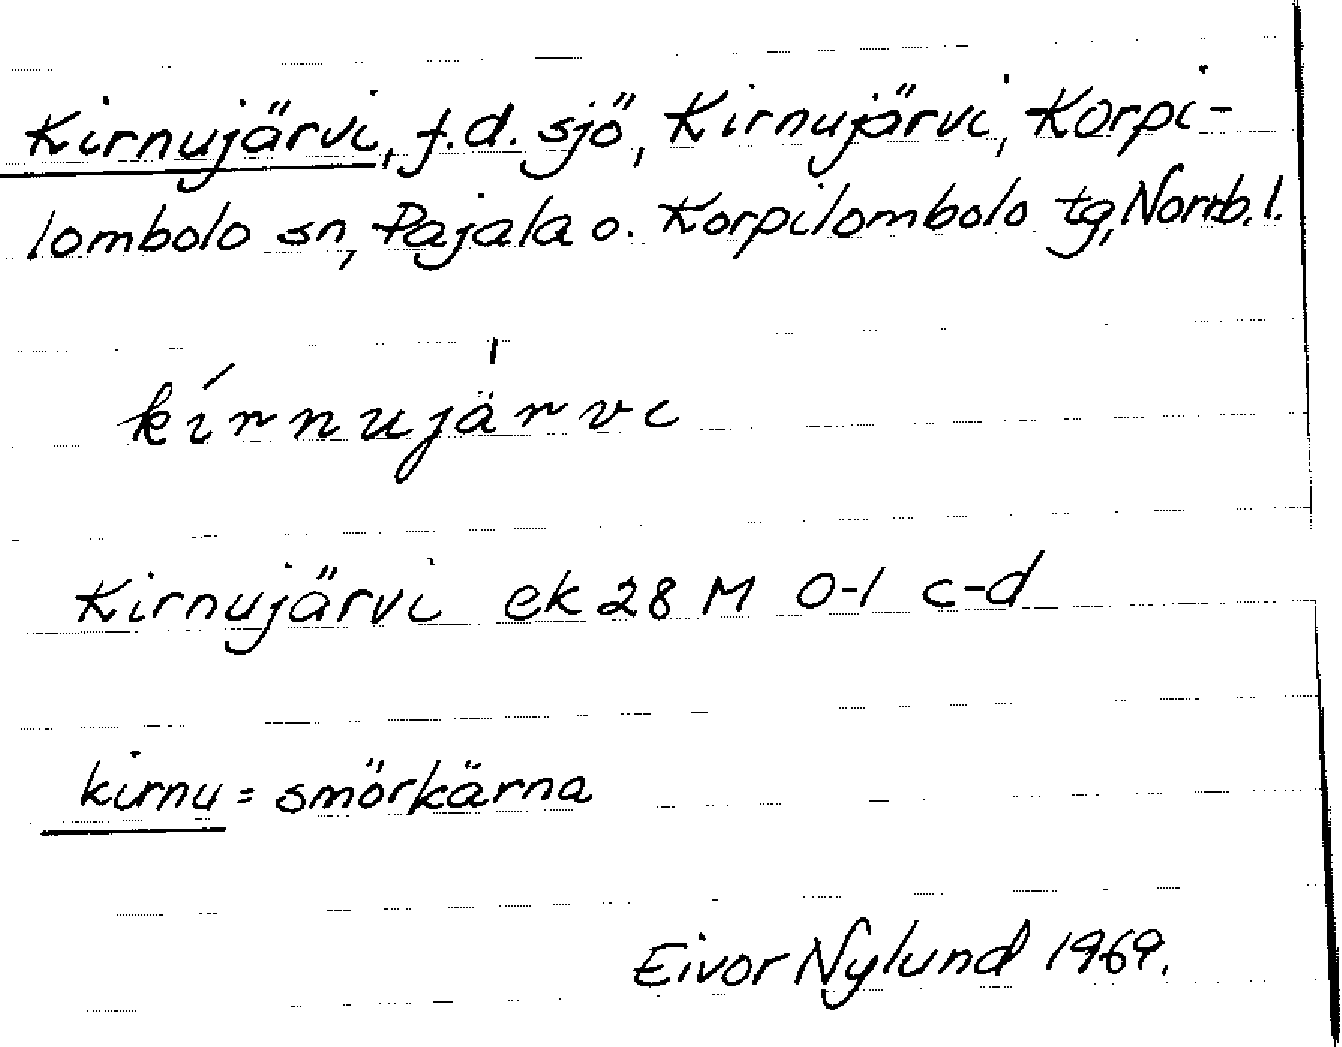 Kirnujärvi, f.d. sjö, Kirnujärvi, Korpi-
lombolo sn, Pajala o. Korpilombolo tg, Norrb. l.
kírnujä̍rvi
Kirnujärvi ek 28 M 0-1 c-d
kirnu = smörkärna
Eivor Nylund 1969.